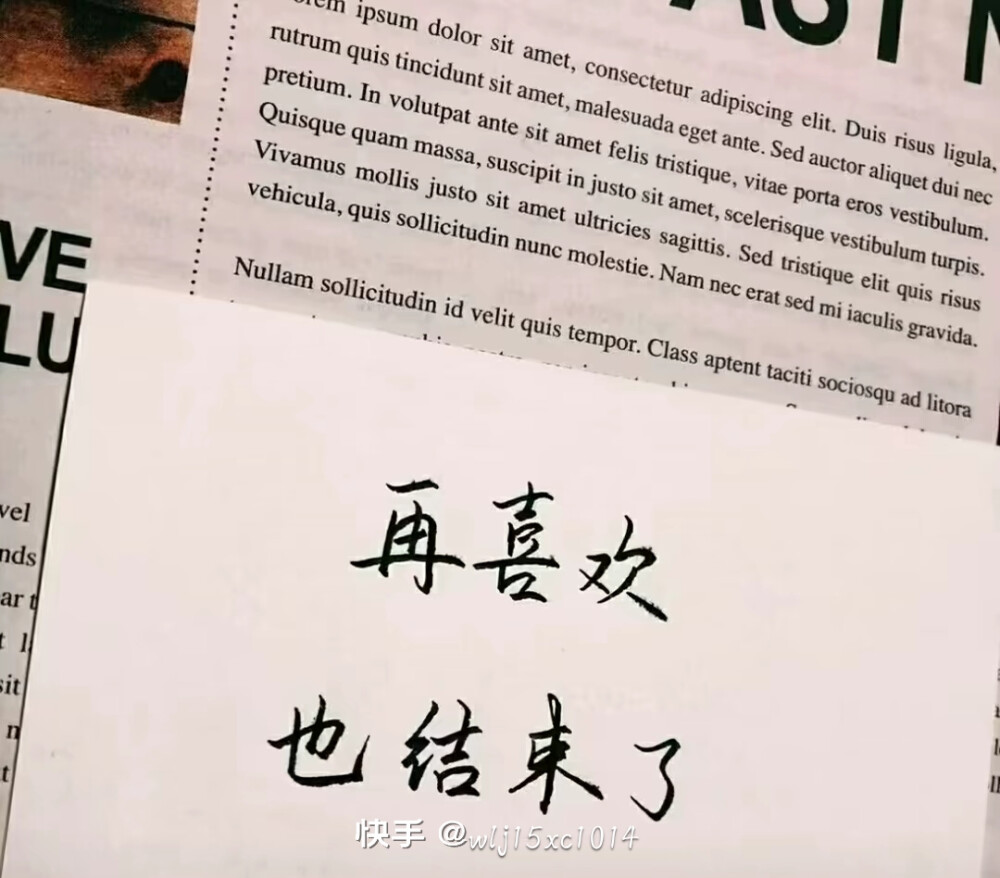 AST M
orem ipsum dolor sit amet, consectetur adipiscing elit. Duis risus ligula,
rutrum quis tincidunt sit amet, malesuada eget ante. Sed auctor aliquet dui nec
pretium. In volutpat ante sit amet felis tristique, vitae porta eros vestibulum.
Quisque quam massa, suscipit in justo sit amet, scelerisque vestibulum turpis.
Vivamus mollis justo sit amet ultricies sagittis. Sed tristique elit quis risus
vehicula, quis sollicitudin nunc molestie. Nam nec erat sed mi iaculis gravida.
Nullam sollicitudin id velit quis tempor. Class aptent taciti sociosqu ad litora
VE
LU
vel
nds
ar t
sit
再喜欢
也结束了
快手 @wlj15xc1014